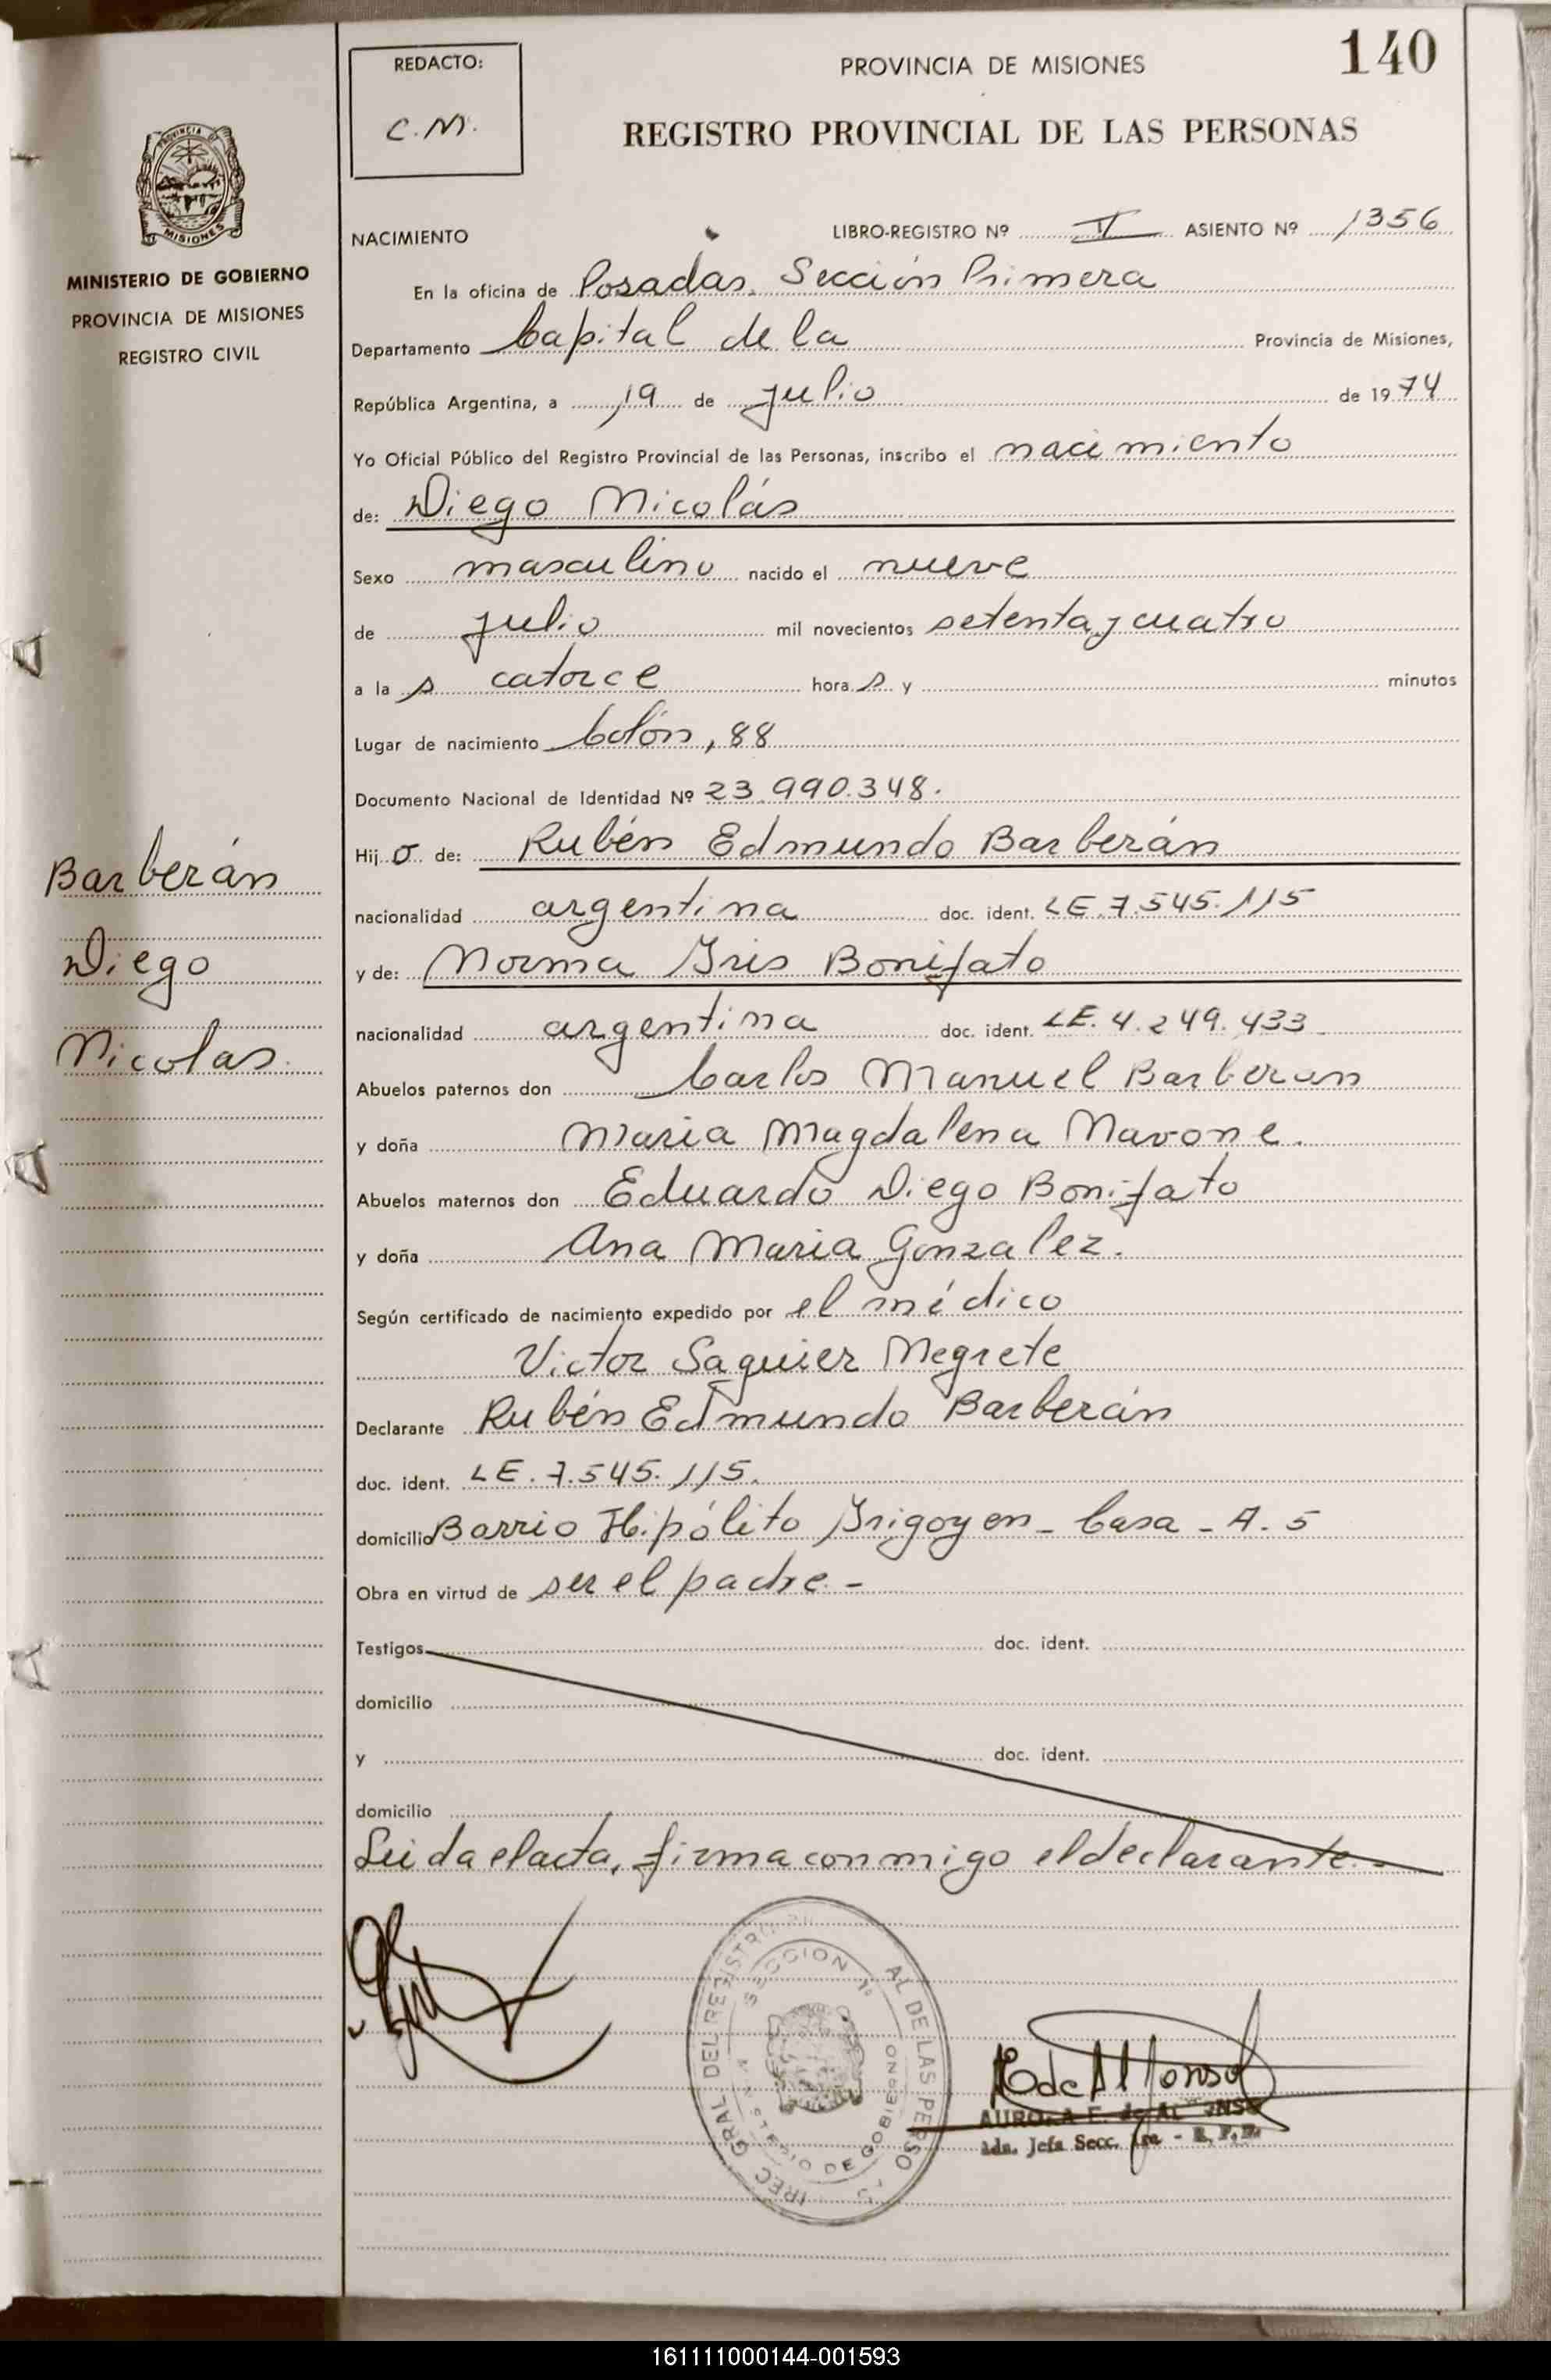 140
REDACTO:
C.M.
PROVINCIA DE MISIONES
REGISTRO PROVINCIAL DE LAS PERSONAS
PROVINCIA DE
MISIONES
MINISTERIO DE GOBIERNO
PROVINCIA DE MISIONES
REGISTRO CIVIL
Barberán
Diego
Nicolas
NACIMIENTO LIBRO-REGISTRO Nº II ASIENTO Nº 1356
En la oficina de Posadas, Sección Primera
Departamento Capital de la Provincia de Misiones,
República Argentina, a 19 de julio de 1974
Yo Oficial Público del Registro Provincial de las Personas, inscribo el nacimiento
de: Diego Nicolás
Sexo masculino nacido el nueve
de julio mil novecientos setenta y cuatro
a la s catorce hora s y minutos
Lugar de nacimiento Colón, 88
Documento Nacional de Identidad Nº 23.990.348.
Hij o de: Rubén Edmundo Barberán
nacionalidad argentina doc. ident. LE.7.545.115
y de: Norma Iris Bonifato
nacionalidad argentina doc. ident. LE.4.249.433
Abuelos paternos don Carlos Manuel Barberan
y doña Maria Magdalena Navone.
Abuelos maternos don Eduardo Diego Bonifato
y doña Ana Maria Gonzalez.
Según certificado de nacimiento expedido por el médico
Victor Saguier Negrete
Declarante Rubén Edmundo Barberán
doc. ident. LE.7.545.115.
domicilio Barrio Hipólito Irigoyen - Casa - A. 5
Obra en virtud de ser el padre. -
Testigos doc. ident.
domicilio
y doc. ident.
domicilio
Leida el acta, firma conmigo el declarante. -
SECCION 1ª
MINISTERIO DE GOBIERNO
E de Alfonso
AURORA E. de ALFONSO
Jefa Secc. 1ra -
161111000144-001593